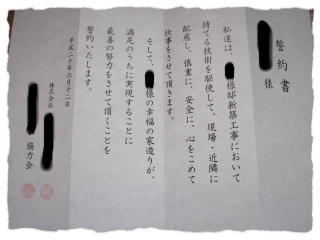 誓約書
様
私達は、様邸新築工事において
持てる技術を駆使して、現場・近隣に
配慮し、慎重に、安全に、心をこめて
仕事をさせて頂きます。
そして、様の幸福の家造りが、
満足のうちに実現することに
最善の努力をさせて頂くことを
誓約いたします。
平成二十年六月十二日
株式会社
協力会